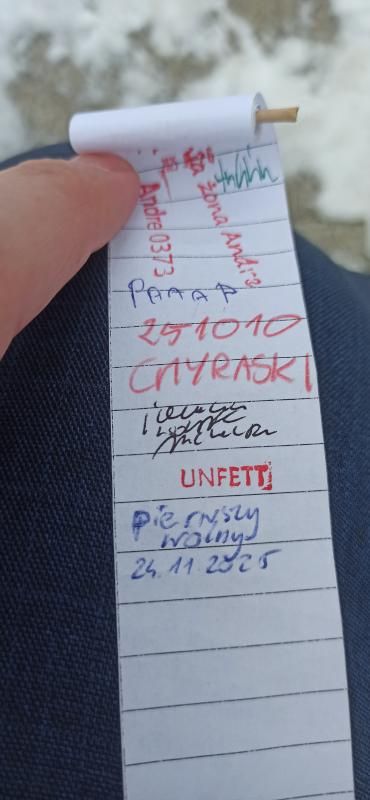 żona Andre
Andre0373
PAAAP
251010
CMYRASKI
UNFETT
Pierwszy
wolny
24.11.2025